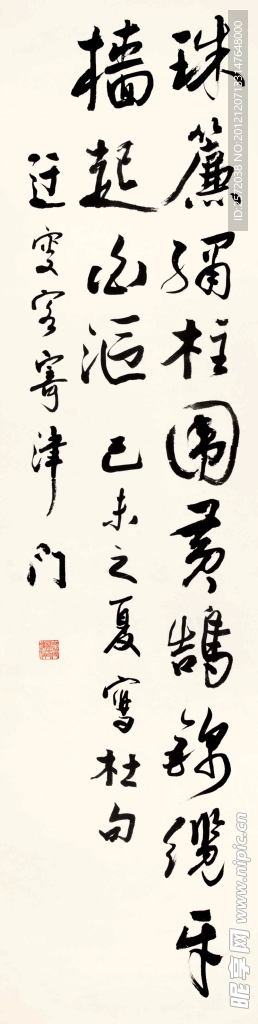 珠簾繡柱圍黃鵠錦纜牙
檣起白漚 己未之夏寫杜句
迂叟客寄津門
ID:2572038 NO:20121207133147648000
昵享网 www.nipic.cn